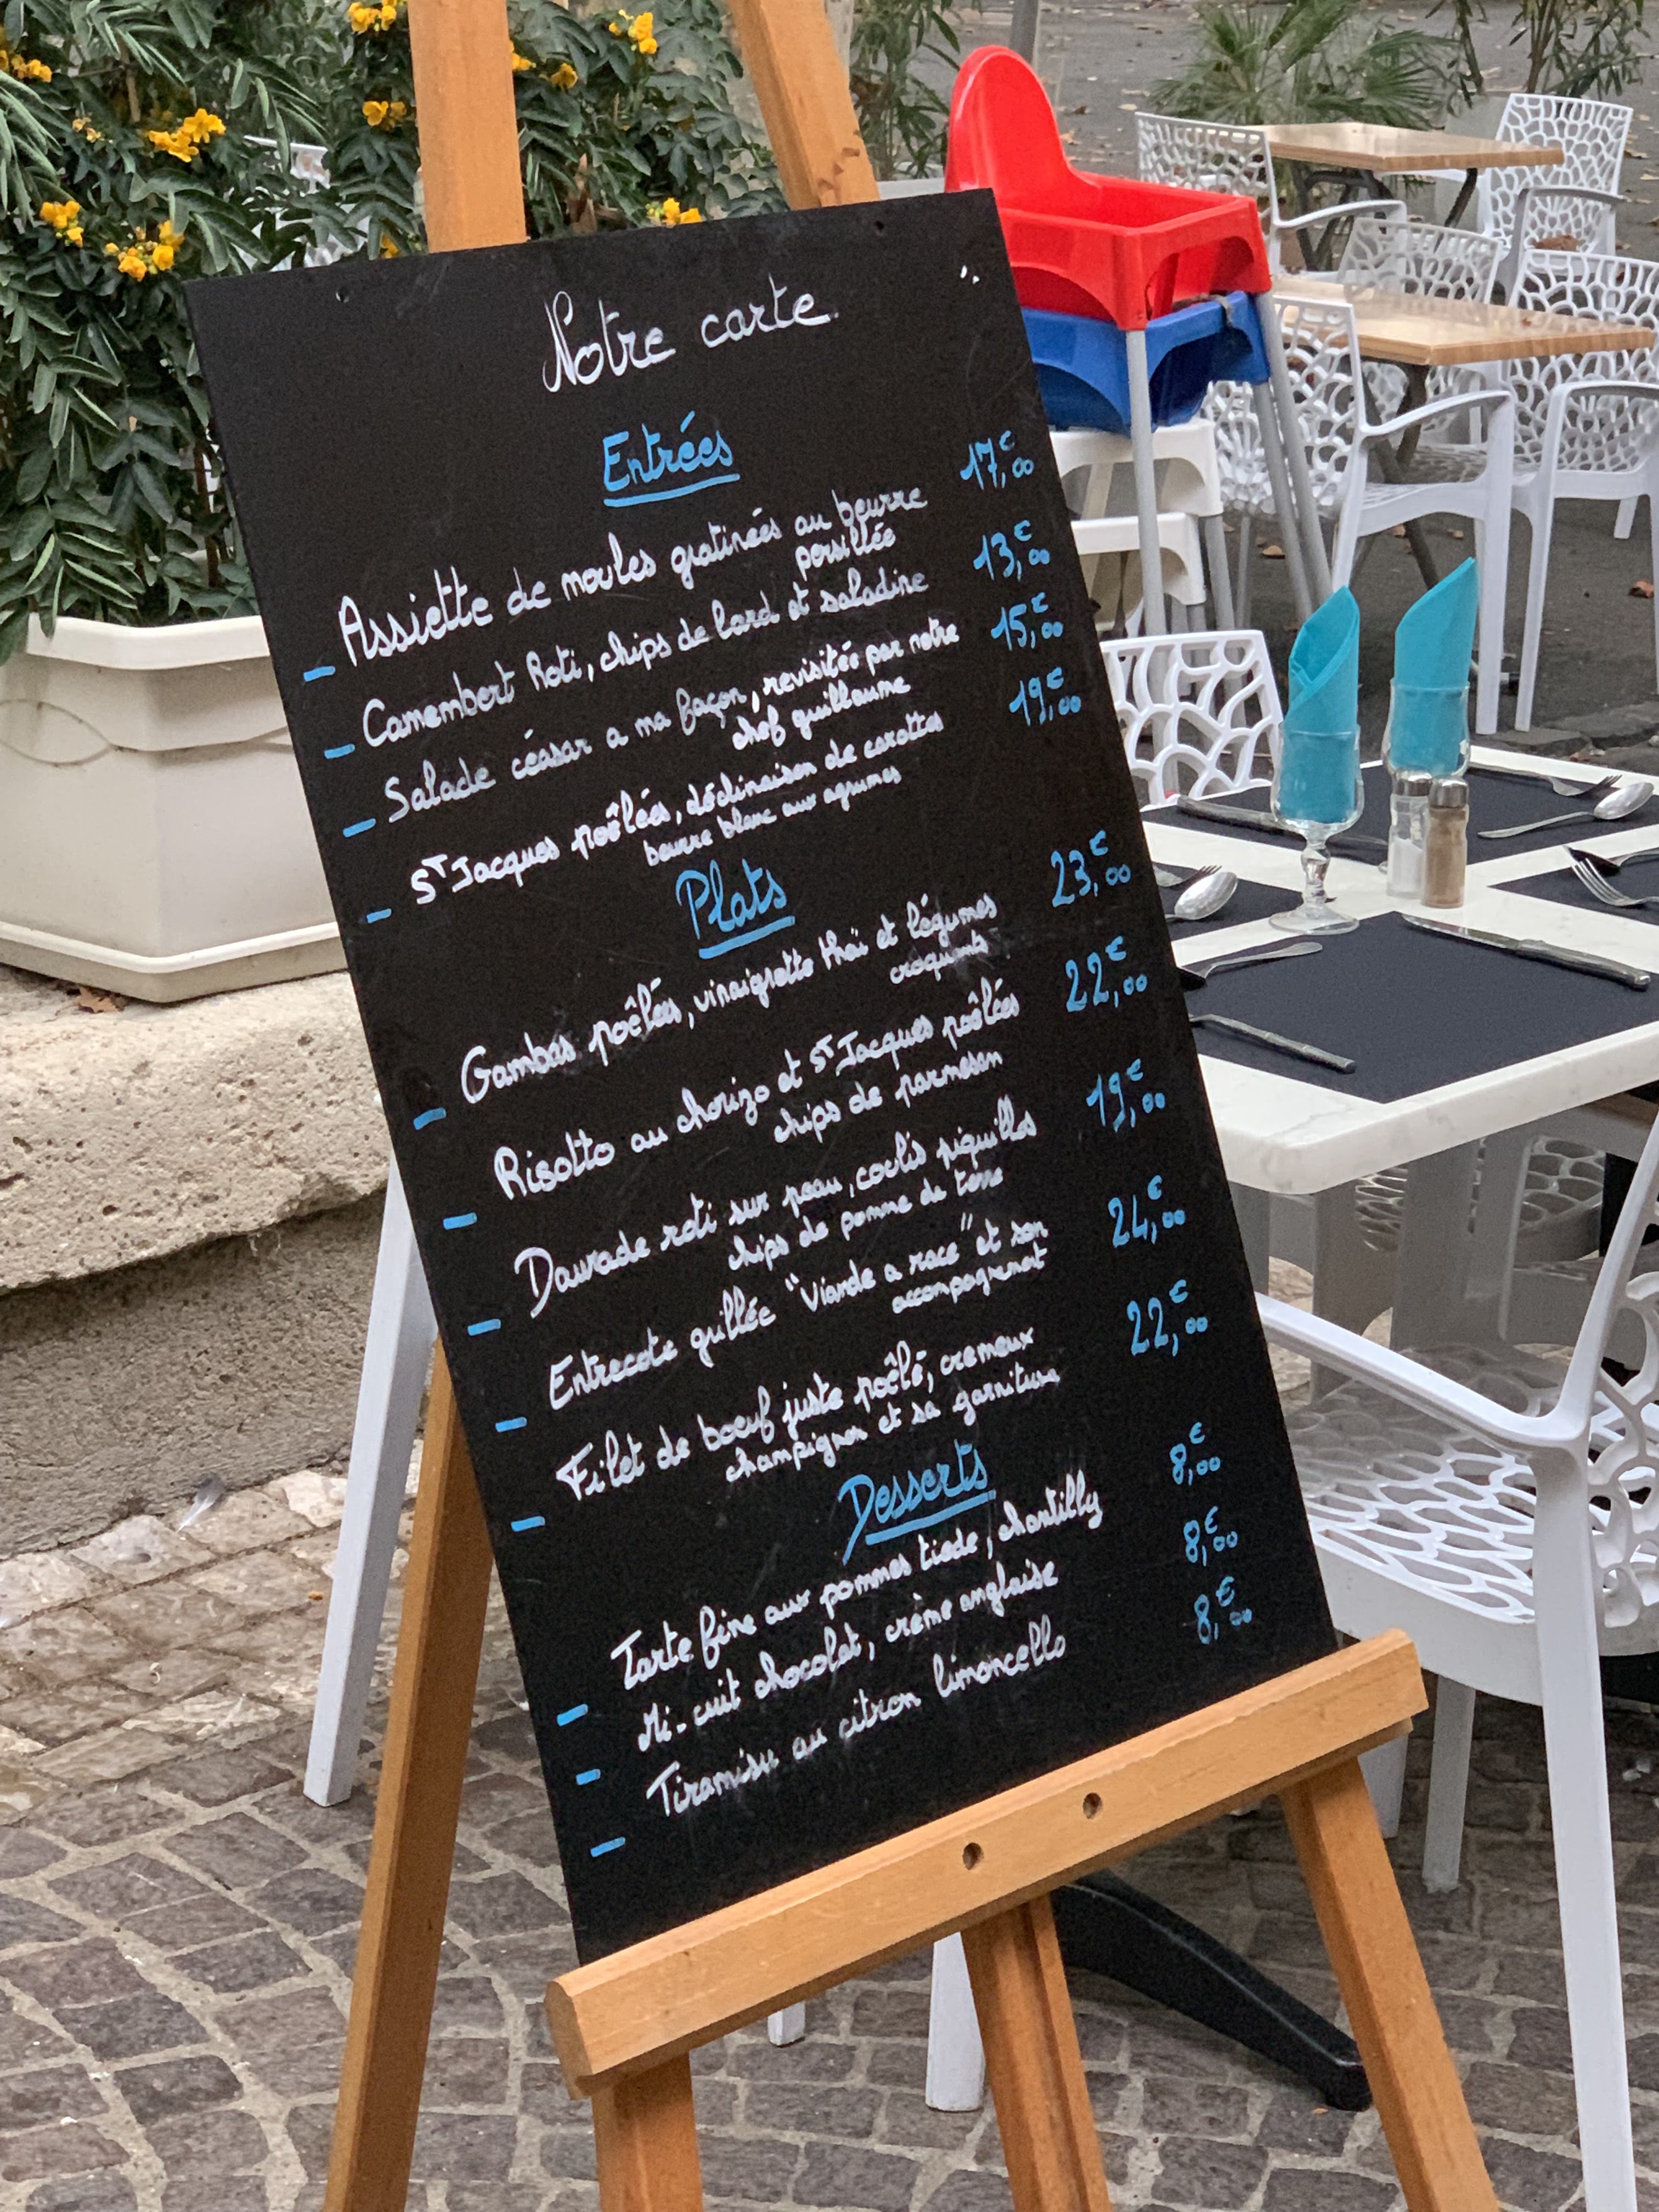 Notre carte
Entrées
Assiette de moules gratinées au beurre 17,00€
persillée
Camembert Roti, chips de lard et saladine 13,00€
Salade céasar a ma façon, revisitée par notre 15,00€
chef guillaume
ST Jacques poêlées, déclinaison de carottes 19,00€
beurre blanc aux agrumes
Plats
Gambas poêlées, vinaigrette thaï et légumes 23,00€
croquants
Risotto au chorizo et ST Jacques poêlées 22,00€
chips de parmesan
Daurade roti sur peau, coulis piquillos 19,00€
chips de pomme de terre
Entrecote grillée "Viande a race" et son 24,00€
accompagnement
Filet de boeuf juste poêlé, cremeux 22,00€
champignon et sa garniture
Desserts
Tarte fine aux pommes tiede, chantilly 8,00€
Mi-cuit chocolat, crème anglaise 8,00€
Tiramisu au citron limoncello 8,00€